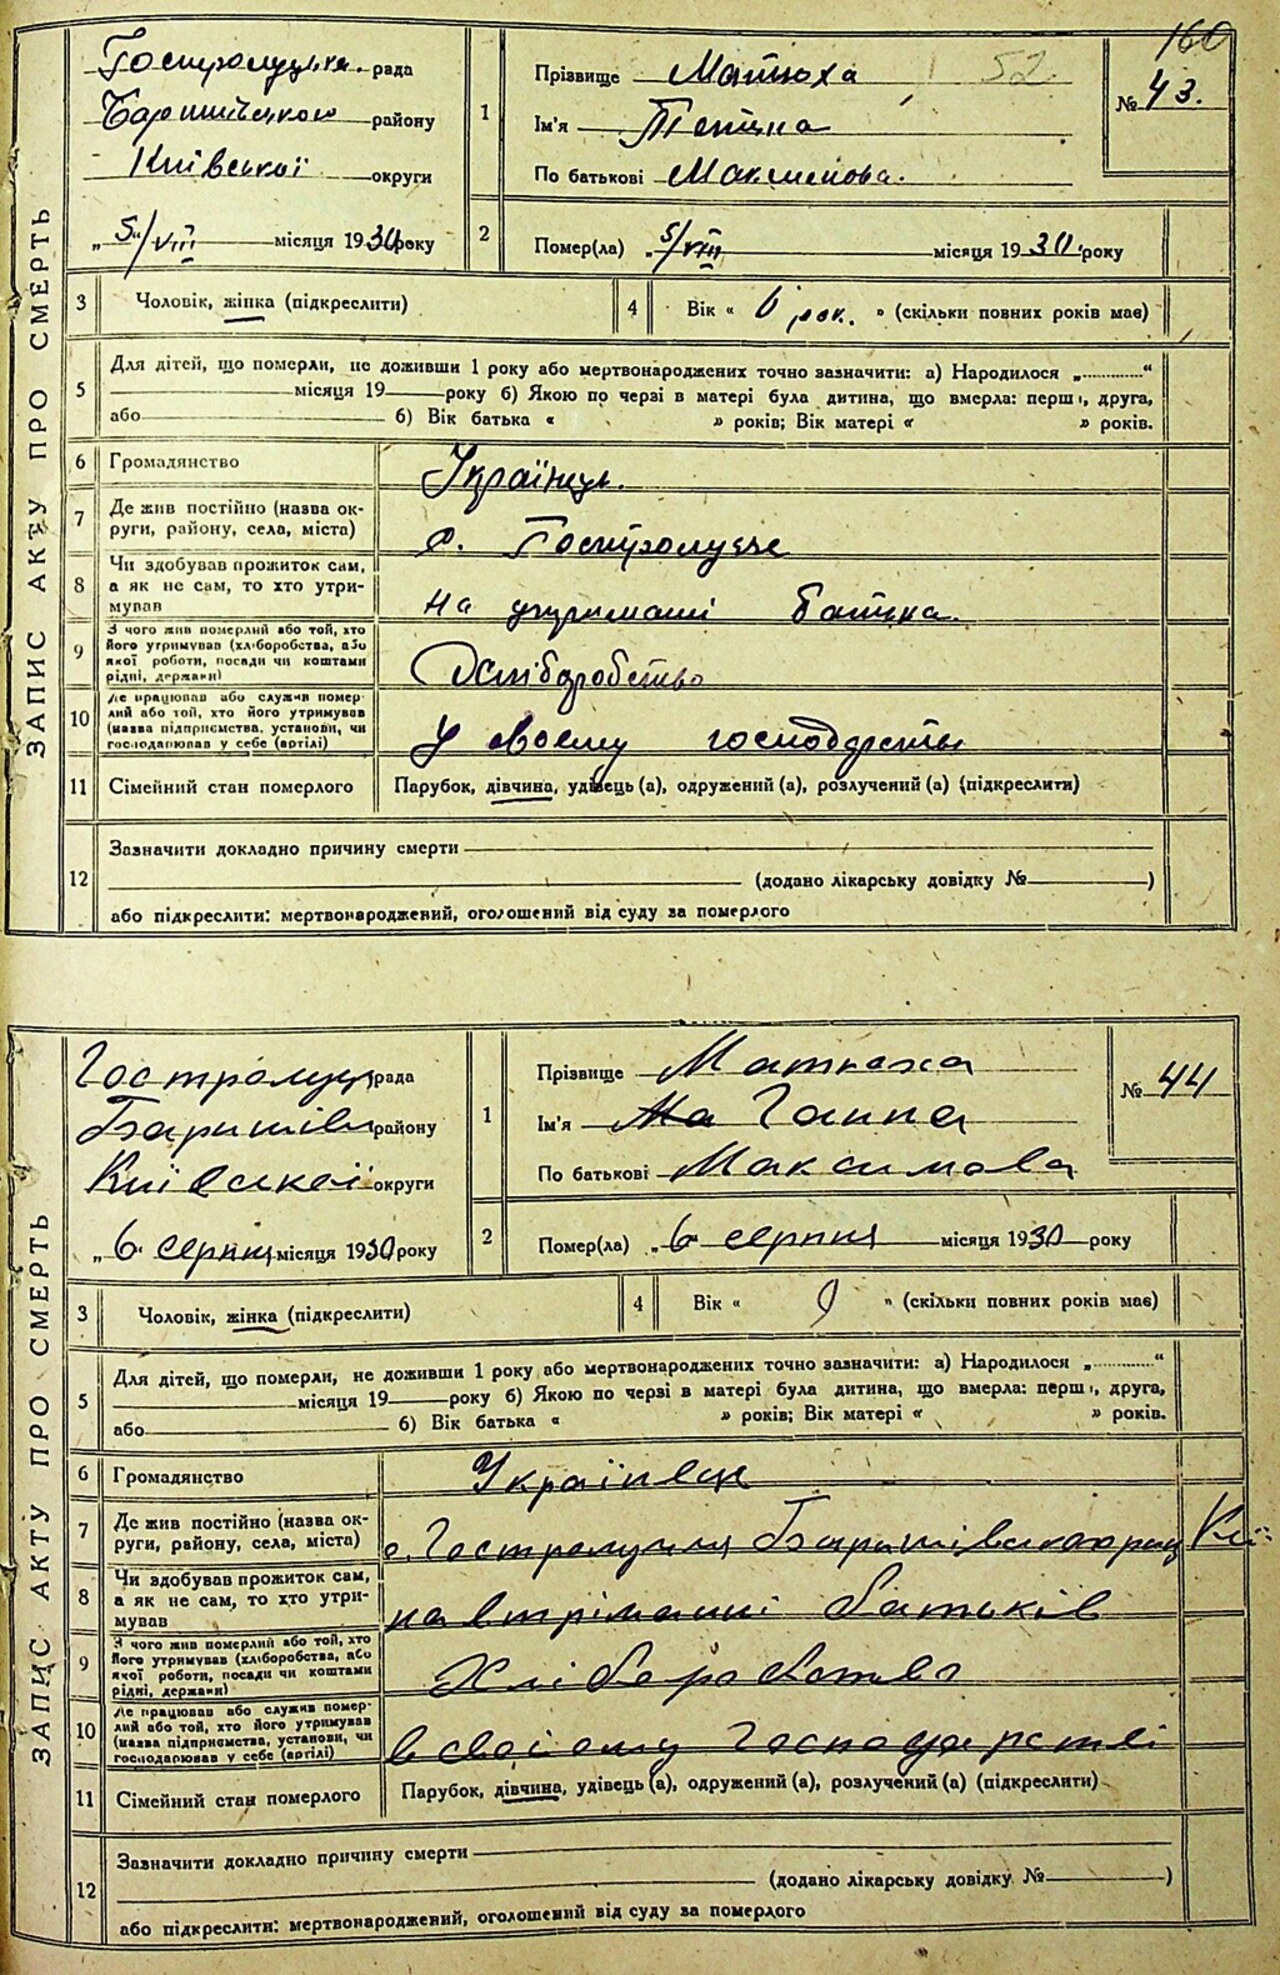 160
ЗАПИС АКТУ ПРО СМЕРТЬ
Гостролуцька рада
Баришівського району
Київської округи
„ 5/VIII місяця 1930 року
1
Прізвище Матюха 52
Ім'я Тетяна
По батькові Максимова.
№ 43.
2
Помер(ла) „ 5/VIII місяця 1930. року
3
Чоловік, жінка (підкреслити)
4
Вік « 6 рок. » (скільки повних років має)
5
Для дітей, що померли, не доживши 1 року або мертвонароджених точно зазначити: а) Народилося „ “
місяця 19 року б) Якою по черзі в матері була дитина, що вмерла: перші, друга,
або б) Вік батька « » років; Вік матері « » років.
6
Громадянство
Українець.
7
Де жив постійно (назва ок-
руги, району, села, міста)
с. Гостролуччє
8
Чи здобував прожиток сам,
а як не сам, то хто утри-
мував
на утриманні батька.
9
З чого жив померлий або той, хто
його утримував (хліборобства, або
якої роботи, посади чи коштами
рідні, держави)
Хліборобство
10
Де працював або служив помер-
лий або той, хто його утримував
(назва підприємства, установи, чи
господарював у себе (артілі)
У своєму
11
Сімейний стан померлого
Парубок, дівчина, удівець (а), одружений (а), розлучений (а) (підкреслити)
12
Зазначити докладно причину смерти
(додано лікарську довідку № )
або підкреслити: мертвонароджений, оголошений від суду за померлого
ЗАПИС АКТУ ПРО СМЕРТЬ
Гостролуц рада
Баришів району
Київської округи
„ 6 серпня місяця 1930 року
1
Прізвище Матюха
Ім'я Ганна
По батькові Максимова
№ 44
2
Помер(ла) „ 6 серпня місяця 1930 року
3
Чоловік, жінка (підкреслити)
4
Вік « 9 » (скільки повних років має)
5
Для дітей, що померли, не доживши 1 року або мертвонароджених точно зазначити: а) Народилося „ “
місяця 19 року б) Якою по черзі в матері була дитина, що вмерла: перші, друга,
або б) Вік батька « » років; Вік матері « » років.
6
Громадянство
Українець
7
Де жив постійно (назва ок-
руги, району, села, міста)
с. Баришівського рай Киї
8
Чи здобував прожиток сам,
а як не сам, то хто утри-
мував
на втріманні батьків
9
З чого жив померлий або той, хто
його утримував (хліборобства, або
якої роботи, посади чи коштами
рідні, держави)
Хліборобство
10
Де працював або служив помер-
лий або той, хто його утримував
(назва підприємства, установи, чи
господарював у себе (артілі)
в своїому господарстві
11
Сімейний стан померлого
Парубок, дівчина, удівець (а), одружений (а), розлучений (а) (підкреслити)
12
Зазначити докладно причину смерти
(додано лікарську довідку № )
або підкреслити: мертвонароджений, оголошений від суду за померлого